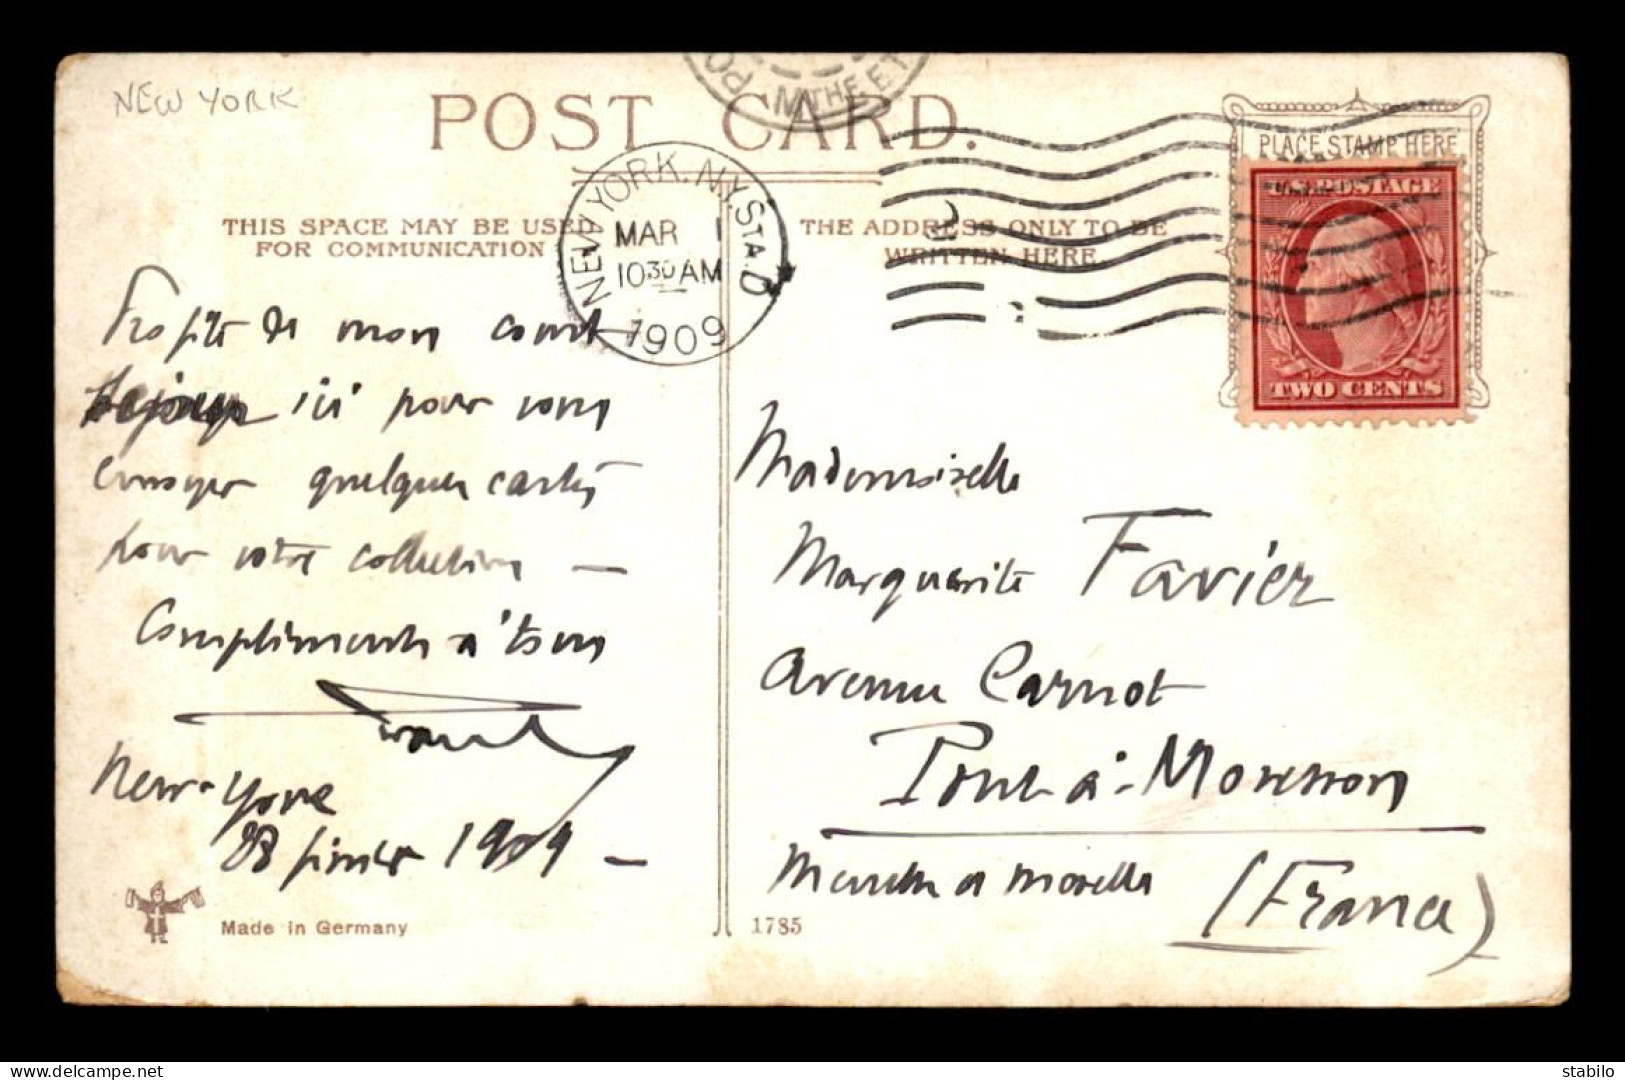 NEW YORK
POST CARD.
THIS SPACE MAY BE USED
FOR COMMUNICATION
THE ADDRESS ONLY TO BE
WRITTEN HERE.
PLACE STAMP HERE
U.S. POSTAGE
TWO CENTS
NEW YORK, N.Y. STA. D
MAR 1
10 30 AM
1909
MTHE ET
Profite de mon court
séjour ici pour vous
envoyer quelques cartes
pour votre collection —
Compliments à tous
New-York
28 février 1909 —
Mademoiselle
Marguerite Favier
Avenue Carnot
Pont-à-Mousson
Meurthe et Moselle
(France)
Made in Germany
1785
stabilo